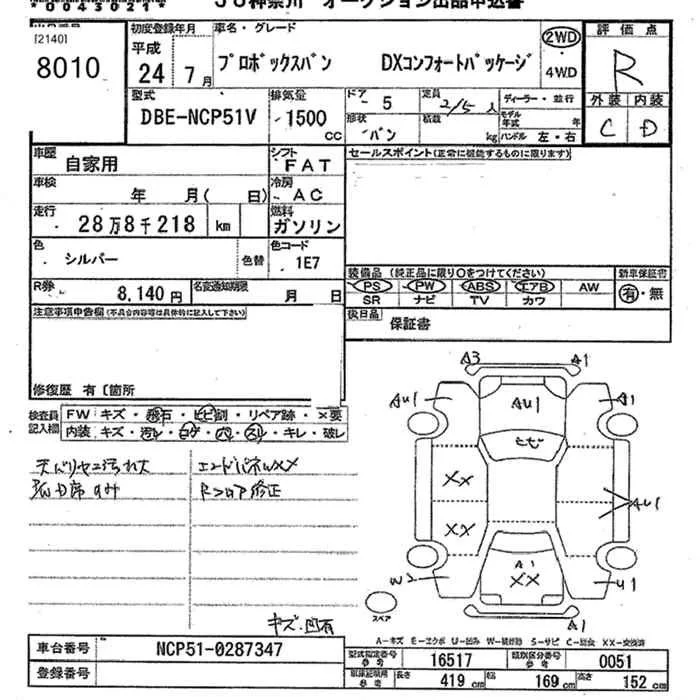 *0043021*
JU神奈川 オークション出品申込書
[2140]
8010
初度登録年月
平成
24年 7月
車名・グレード
プロボックスバン DXコンフォートパッケージ
2WD
・4WD
評価点
R
外装 内装
C D
型式
DBE-NCP51V
排気量
1500
CC
ドア
5
定員
2/5人
形状
バン
積載
kg
ディーラー・並行
モデル年式 年
ハンドル 左・右
車歴
自家用
シフト
FAT
セールスポイント(正常に機能するものに限ります)
車検
年 月( 日)
冷房
AC
走行
28万8千218 km
燃料
ガソリン
色
シルバー
色替
色コード
1E7
装備品 (純正品に限り○をつけてください)
新車保証書
PS PW ABS エアB AW
有・無
SR ナビ TV カワ
R券
8,140円
名変通知期限
月 日
後日品
保証書
注意事項申告欄(不具合内容等は具体的に記入して下さい)
修復歴 有〔箇所
検査員記入欄
FW キズ・飛石・ヒビ割・リペア跡・×要
内装 キズ・汚レ・コゲ・穴・スリ・キレ・破レ
エンドパネルXX
キズ・凹有
A3 A1
AU1 AU1 A1
ヒビ
XX
XX
AU1
A1
XX
W2 U1
A1
スペア
A-キズ E-エクボ U-凹み W-補修跡 S-サビ C-腐食 XX-交換済
車台番号
NCP51-0287347
登録番号
型式指定番号
参考
16517
類別区分番号
参考
0051
長さ
419 cm
幅
169 cm
高さ
152 cm